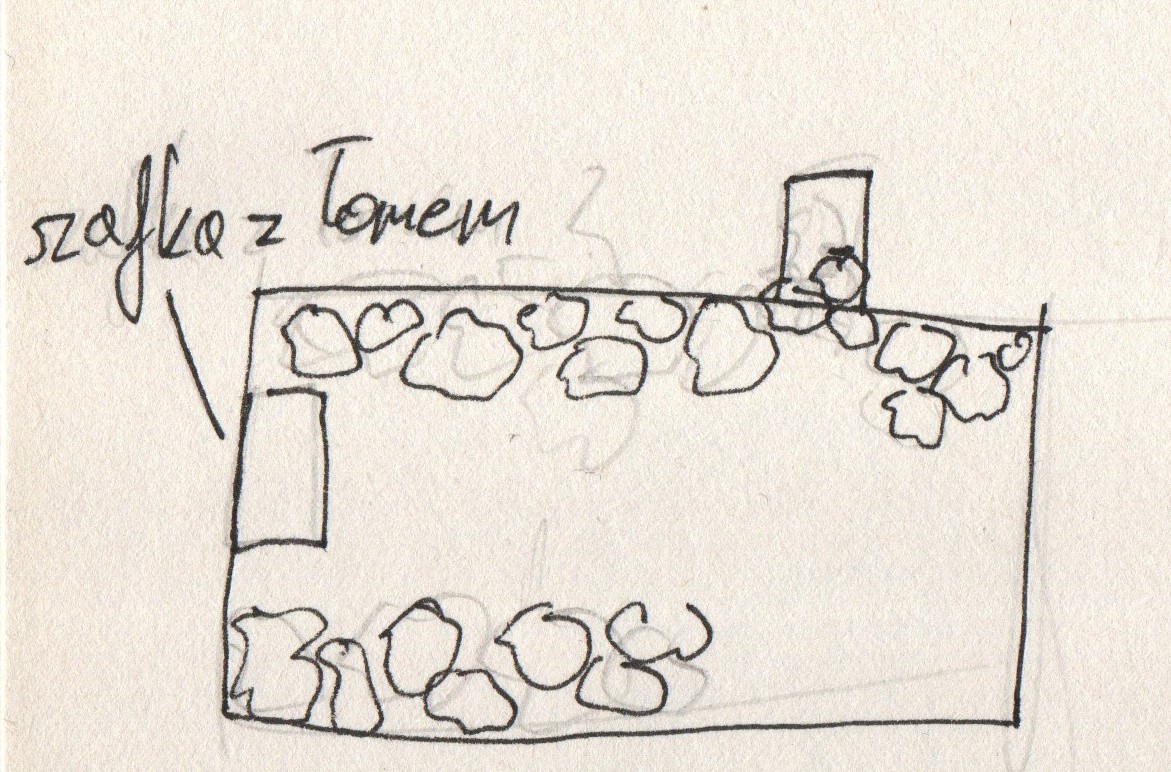 szafka z Tomem